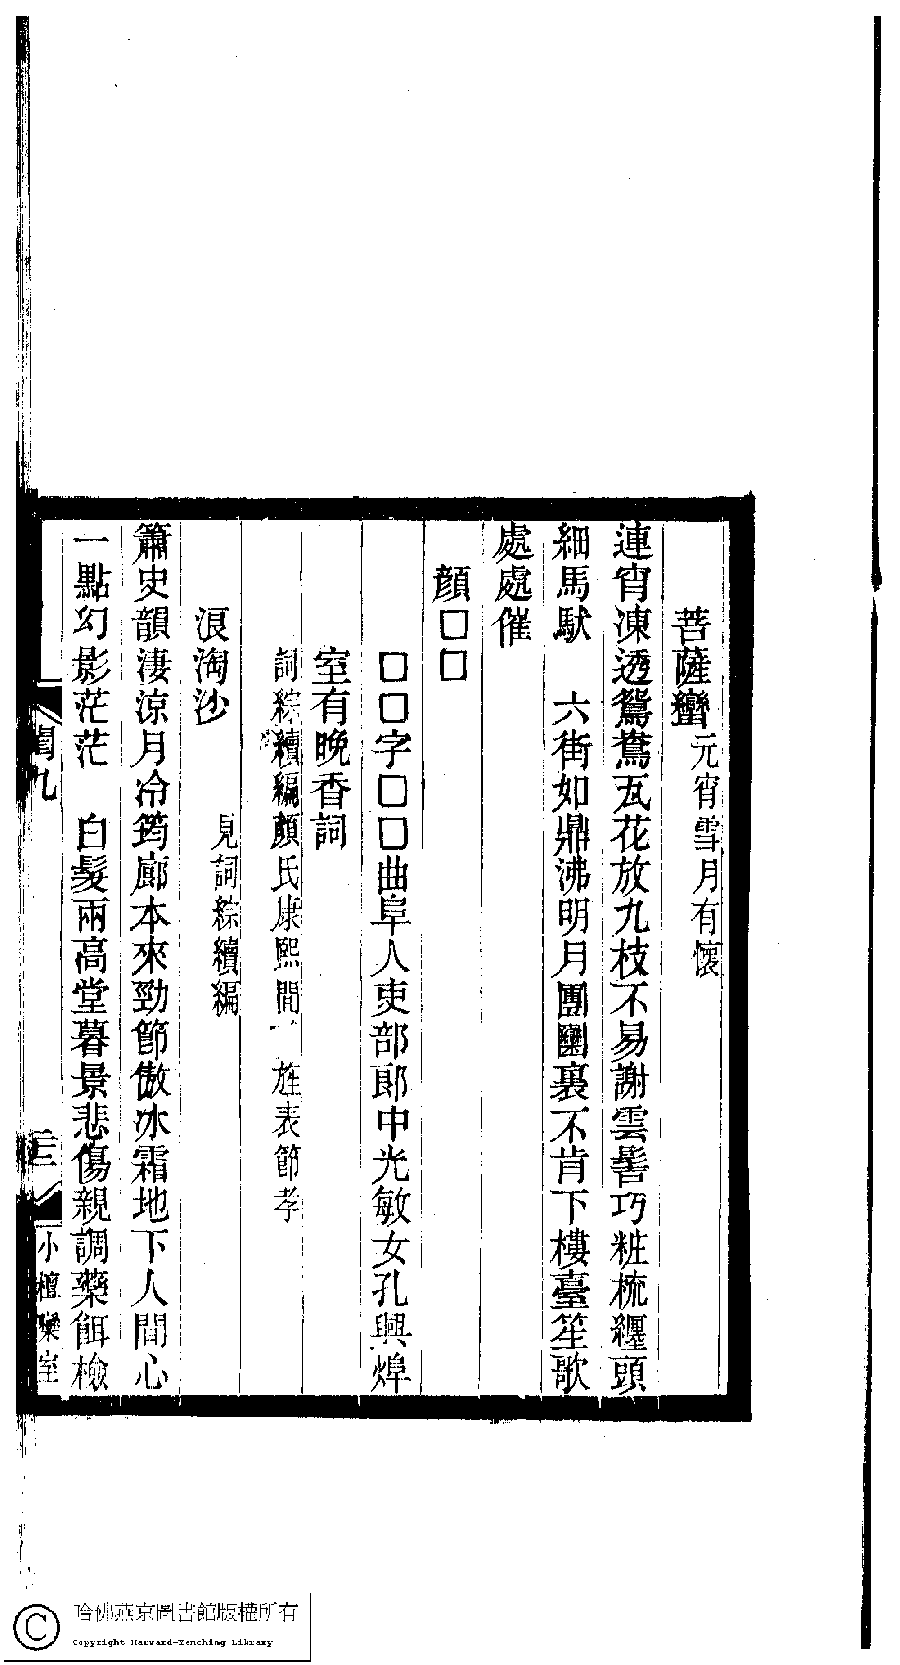 菩薩蠻元宵雪月有懷
連宵凍透鴛鴦瓦花放九枝不易謝雲髻巧粧梳纏頭
細馬馱　六街如鼎沸明月團圞裏不肯下樓臺笙歌
處處催
顔□□
□□字□□曲阜人吏部郎中光敏女孔興焯
室有晚香詞
詞綜續編顏氏康熙間　旌表節孝
浪淘沙　見詞綜續編
簫史韻淒涼月冷筠廊本來勁節傲冰霜地下人間心
一點幻影茫茫　白髮兩高堂暮景悲傷親調藥餌檢
閨九
小檀欒室
哈佛燕京圖書館版權所有
Copyright Harvard-Yenching Library